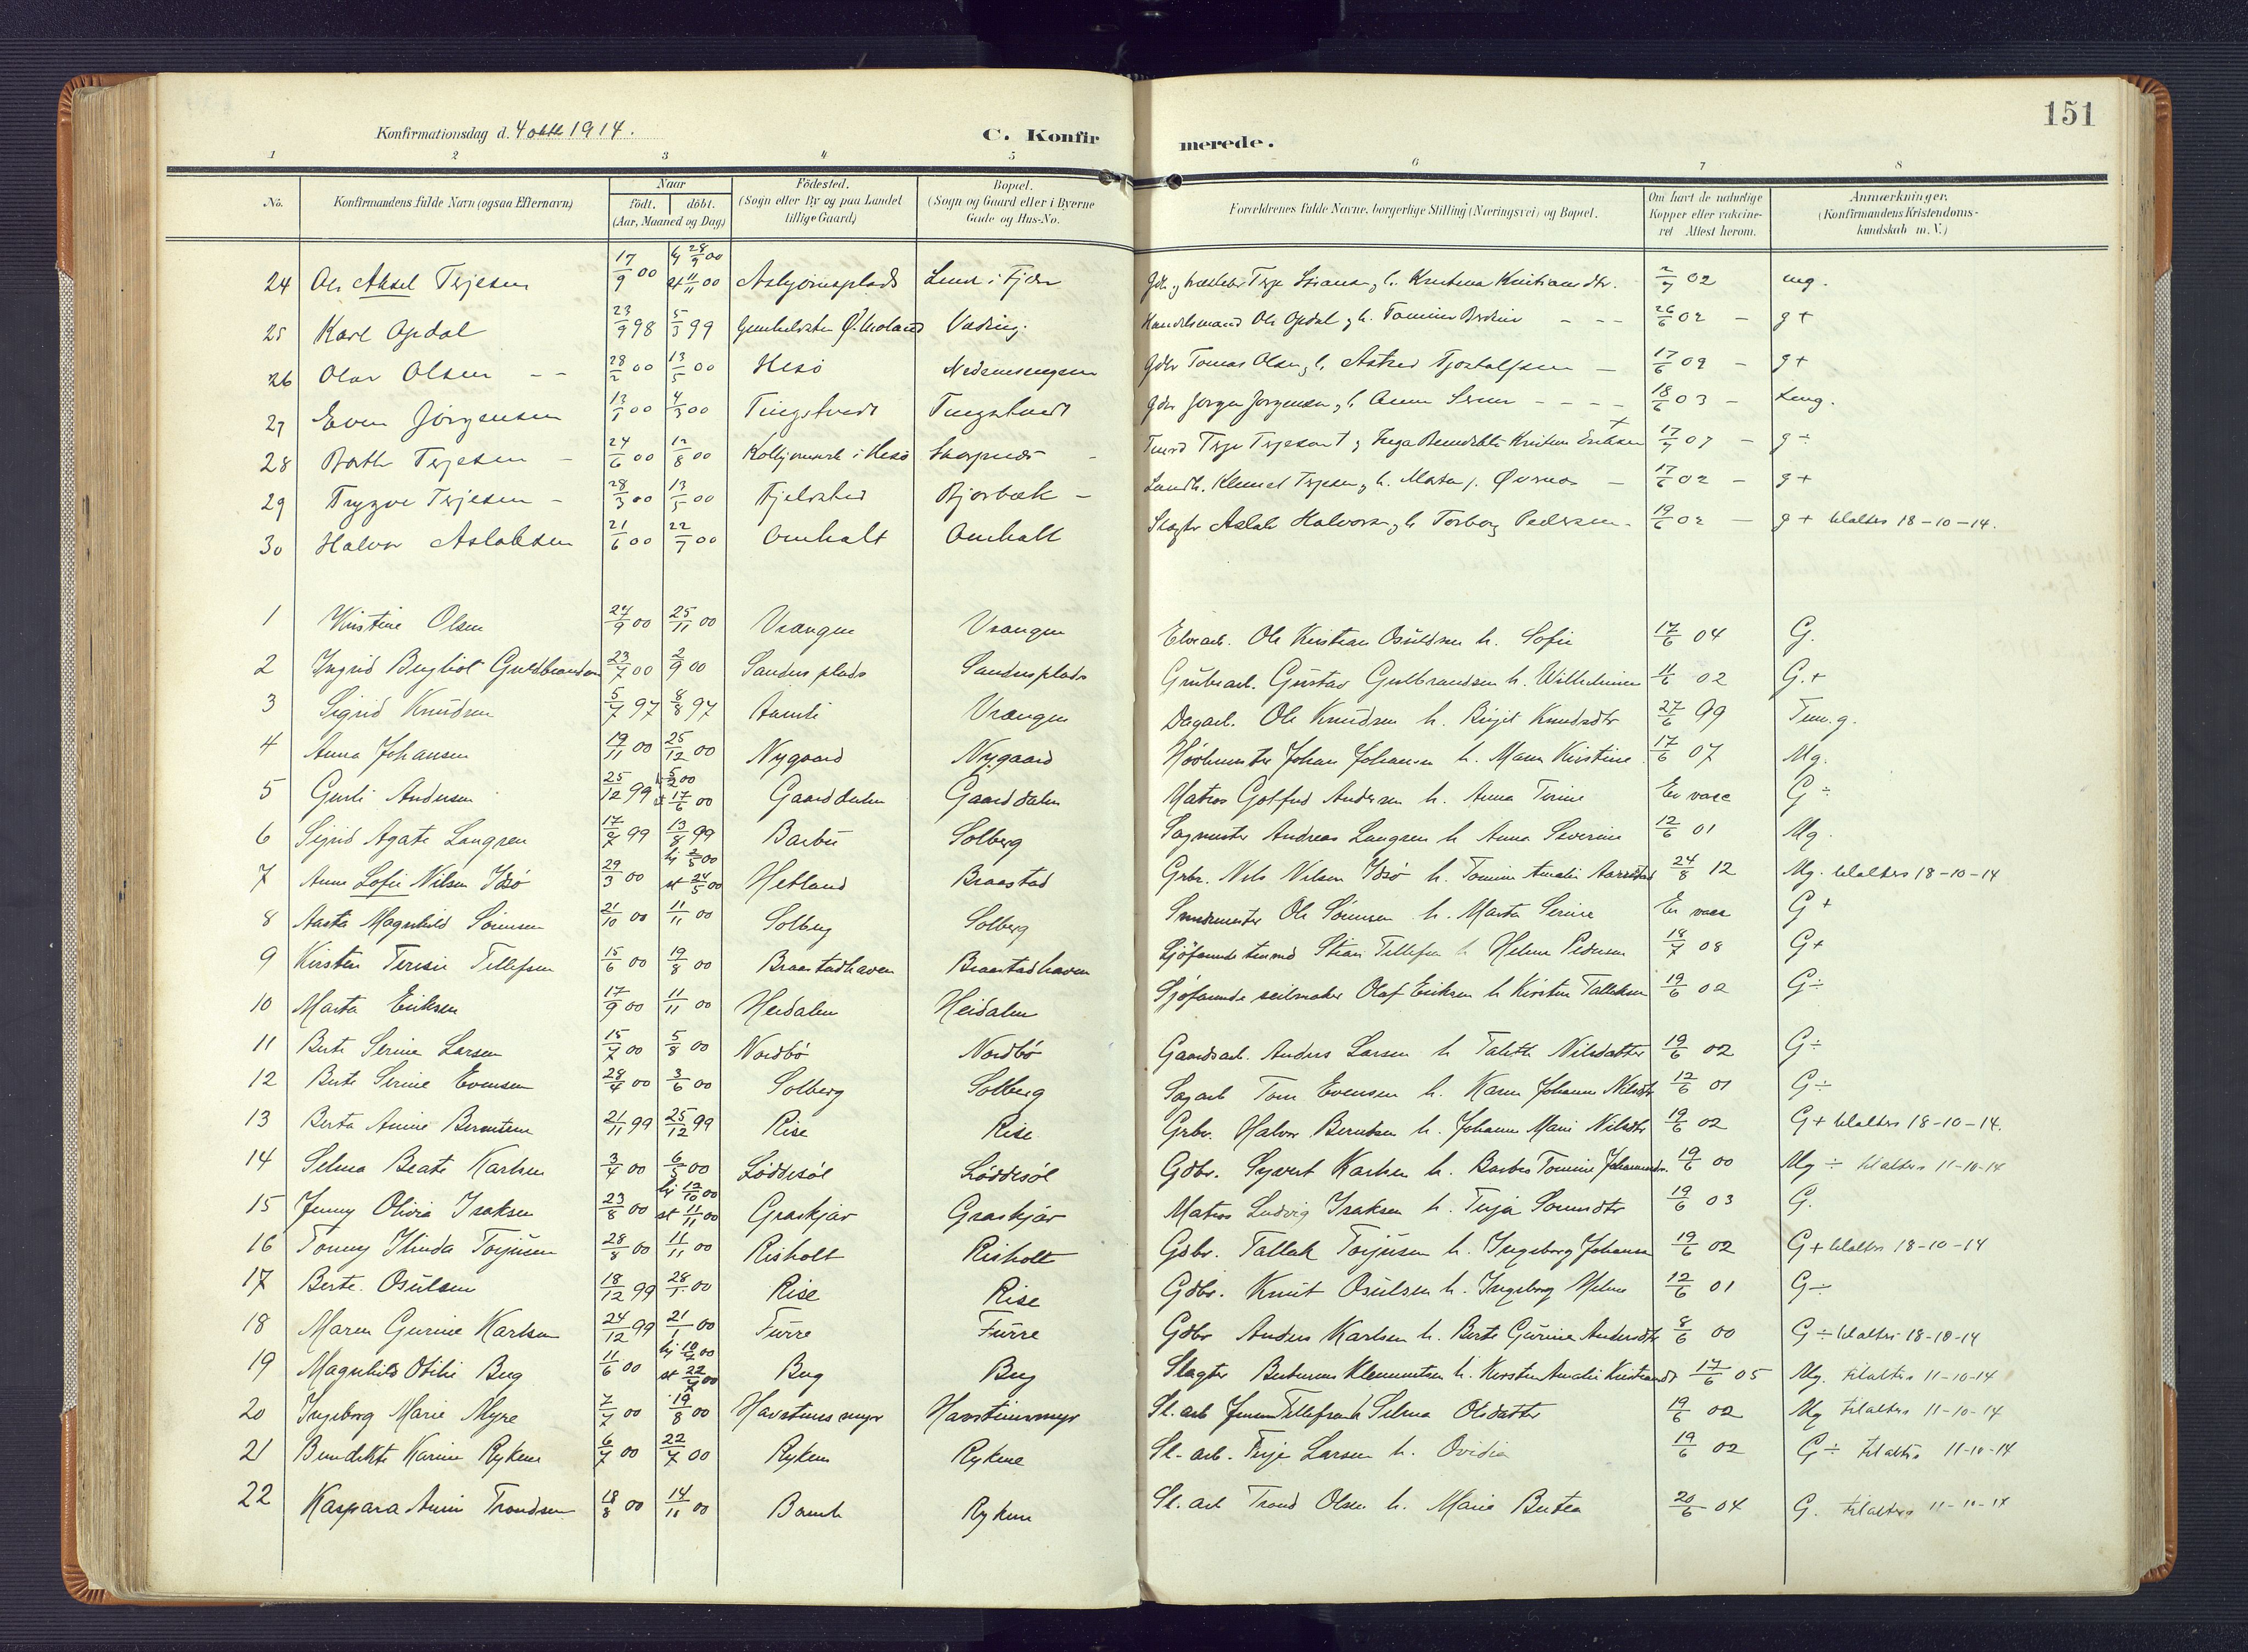 151
Konfirmationsdag d. 4 oktb 1914.
C. Konfirmerede.
1 2 3 4 5 6 7 8
No. Konfirmandens fulde Navn (ogsaa Efternavn) Naar födt. döbt. (Aar, Maaned og Dag) Födested. (Sogn eller By og paa Landet tillige Gaard) Bopæl. (Sogn og Gaard eller i Byerne Gade og Hus-No. Forældrenes fulde Navne, borgerlige Stilling (Næringsvei) og Bopæl. Om havt de naturlige Kopper eller vakcineret Attest herom. Anmærkninger. (Konfirmandens Kristendomskundskab m. V.)
24 Ole Aksel Terjesen 17/9 00 hj 28/9 00 st 11/11 00 Asbjørnsplads Lund i Fjære 2/7 02 mg.
25 Karl Opdal 23/9 98 5/3 99 Ø. Moland Handelsmand Ole Opdal og h. 26/6 02 — g +
26 Olav Olsen 28/2 00 13/5 00 Hesö Gdbr Tomas Olsen, h. 17/6 02 — g +
27 Even Jörgensen 13/1 00 4/3 00 Tingstvedt Tingstvedt Gdbr Jørgen Jørgensen, h. Anne 18/6 03 —
28 Terjesen 24/6 00 12/8 00 i Hesö Terje Terjesen † 17/7 07 — g ÷
29 Trygve Terjesen 28/3 00 13/5 00 Fjelsted Bjorbæk Klemet Terjesen, h. 17/6 02 — g +
30 Halvor Aslaksen 21/6 00 22/7 00 Omholt Omholt Aslak Halvorsen, h. Torborg Pedersen 19/6 02 — g + tilalters 18-10-14.
1 Kristine Olsen 27/9 00 25/11 00 Vrangen Vrangen Ole Kristian Osuldsen h. Sofie 17/6 04 G.
2 Ingrid Bergliot Guldbrandsen 23/7 00 2/9 00 Sandens plads Sandens plads Grubearb. Gustav Gulbrandsen h. Wilhelmine 02 G. +
3 Sigrid Knudsen 5/7 97 8/8 97 Aamli Vrangen Dagarb. Ole Knudsen h. Birgit Knudsdtr 27/6 99 Tem. g.
4 Anna Johansen 19/11 00 25/12 00 Nygaard Nygaard Johan Johansen h. Maren Kirstine 17/6 07 Mg.
5 Gurli Andersen 25/12 99 st 17/6 00 Gaarddalen Gaarddalen Matros Gotfred Andersen h. Anna Terine Er vacc G ÷
6 Sigrid Agate Langren 17/7 99 13/8 99 Barbu Solberg Sagmester Andreas Langren h Anna Severine 12/6 01 Mg.
7 Anne Sofie Nilsen Idsö 29/3 00 hj 2/5 00 st 24/5 00 Hetland Braastad Grbr. Nils Nilsen Idsö h. Tomine Amalie Aarrestad 24/8 12 Mg. tilalters 18-10-14
8 Aasta Magnhild Sörensen 21/10 00 11/11 00 Solberg Solberg Ole Sörensen h. Marta Serine Er vacc G +
9 Kirsten Teresie Tellefsen 15/6 00 19/8 00 Braastadhaven Braastadhaven Sjöfarende Stian Tellefsen h Helene Pedersen 18/7 08 G +
10 Marta Eriksen 17/9 00 11/11 00 Heidalen Heidalen Sjöfarende seilmaker Olaf Eriksen h Kirstine Tallaksen 19/6 02 G ÷
11 Berte Serine Larsen 15/7 00 5/8 00 Nordbö Nordbö Gaardsarb. Anders Larsen h Talette Nilsdatter 19/6 02 G ÷
12 Berte Serine Evensen 28/4 00 3/6 00 Solberg Solberg Sagarb Tom Evensen h. Karen Johanne Nilsdtr 12/6 01 G ÷
13 Berta Amine Berntsen 21/11 99 25/12 99 Rise Rise Grbr. Halvor Berntsen h. Johanne Marie Nilsdtr 19/6 02 G + tilalters 18-10-14.
14 Selma Beate Karlsen 3/4 00 6/5 00 Löddesöl Löddesöl Gdbr. Syvert Karlsen h. Barbro Tomine 19/6 00 Mg ÷ tilalters 11-10-14
15 Jenny Olivia Isaksen 23/8 00 hj 12/10 00 st 11/11 00 Graskjær Graskjær Matros Ludvig Isaksen h. 19/6 03 G.
16 Tonny Torjusen 28/8 00 11/11 00 Risholt Risholt Gdbr. Tallak Torjusen h. Ingeborg Johanne 19/6 02 G + tilalters 18-10-14
17 Berte Osulsen 18/12 99 28/1 00 Rise Rise Gdbr. Knut Osulsen h. Ingeborg Helene 12/6 01 G ÷
18 Maren Gurine Karlsen 24/12 99 21/1 00 Furre Furre Gdbr Anders Karlsen h. Berte Gurine Andersdtr 8/6 00 G ÷ tilalters 18-10-14
19 Magnhild Otilie Berg 11/6 00 st 22/7 00 Berg Berg Klemmetsen h. Kirsten Amalie 17/6 05 Mg. tilalters 11-10-14
20 Ingeborg Marie Myre 7/7 00 19/8 00 Havstensmyr Havstensmyr Sl. arb Jens Tellefsen h Selma Olsdatter 19/6 02 Mg tilalters 11-10-14
21 Benedikte Karine Rykene 6/7 00 22/7 00 Rykene Rykene Sl. arb. Terje Larsen h. Ovidia 19/6 02 G ÷ tilalters 11-10-14
22 Kaspara Amine Trondsen 18/8 00 14/10 00 Rykene Sl. arb Trond Olsen h. Marie Bertea 20/6 04 G. tilalters